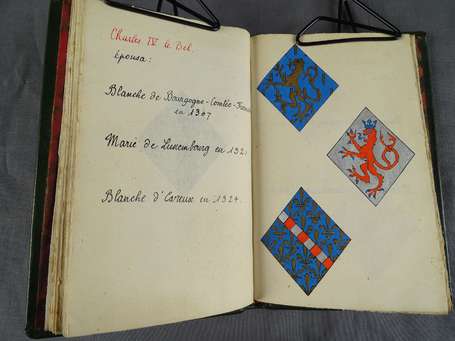 Charles IV le Bel.
épousa:
Blanche de Bourgogne-Comtée-
en 1307
Marie de Luxembourg en 132
Blanche d'Evreux en 1324.